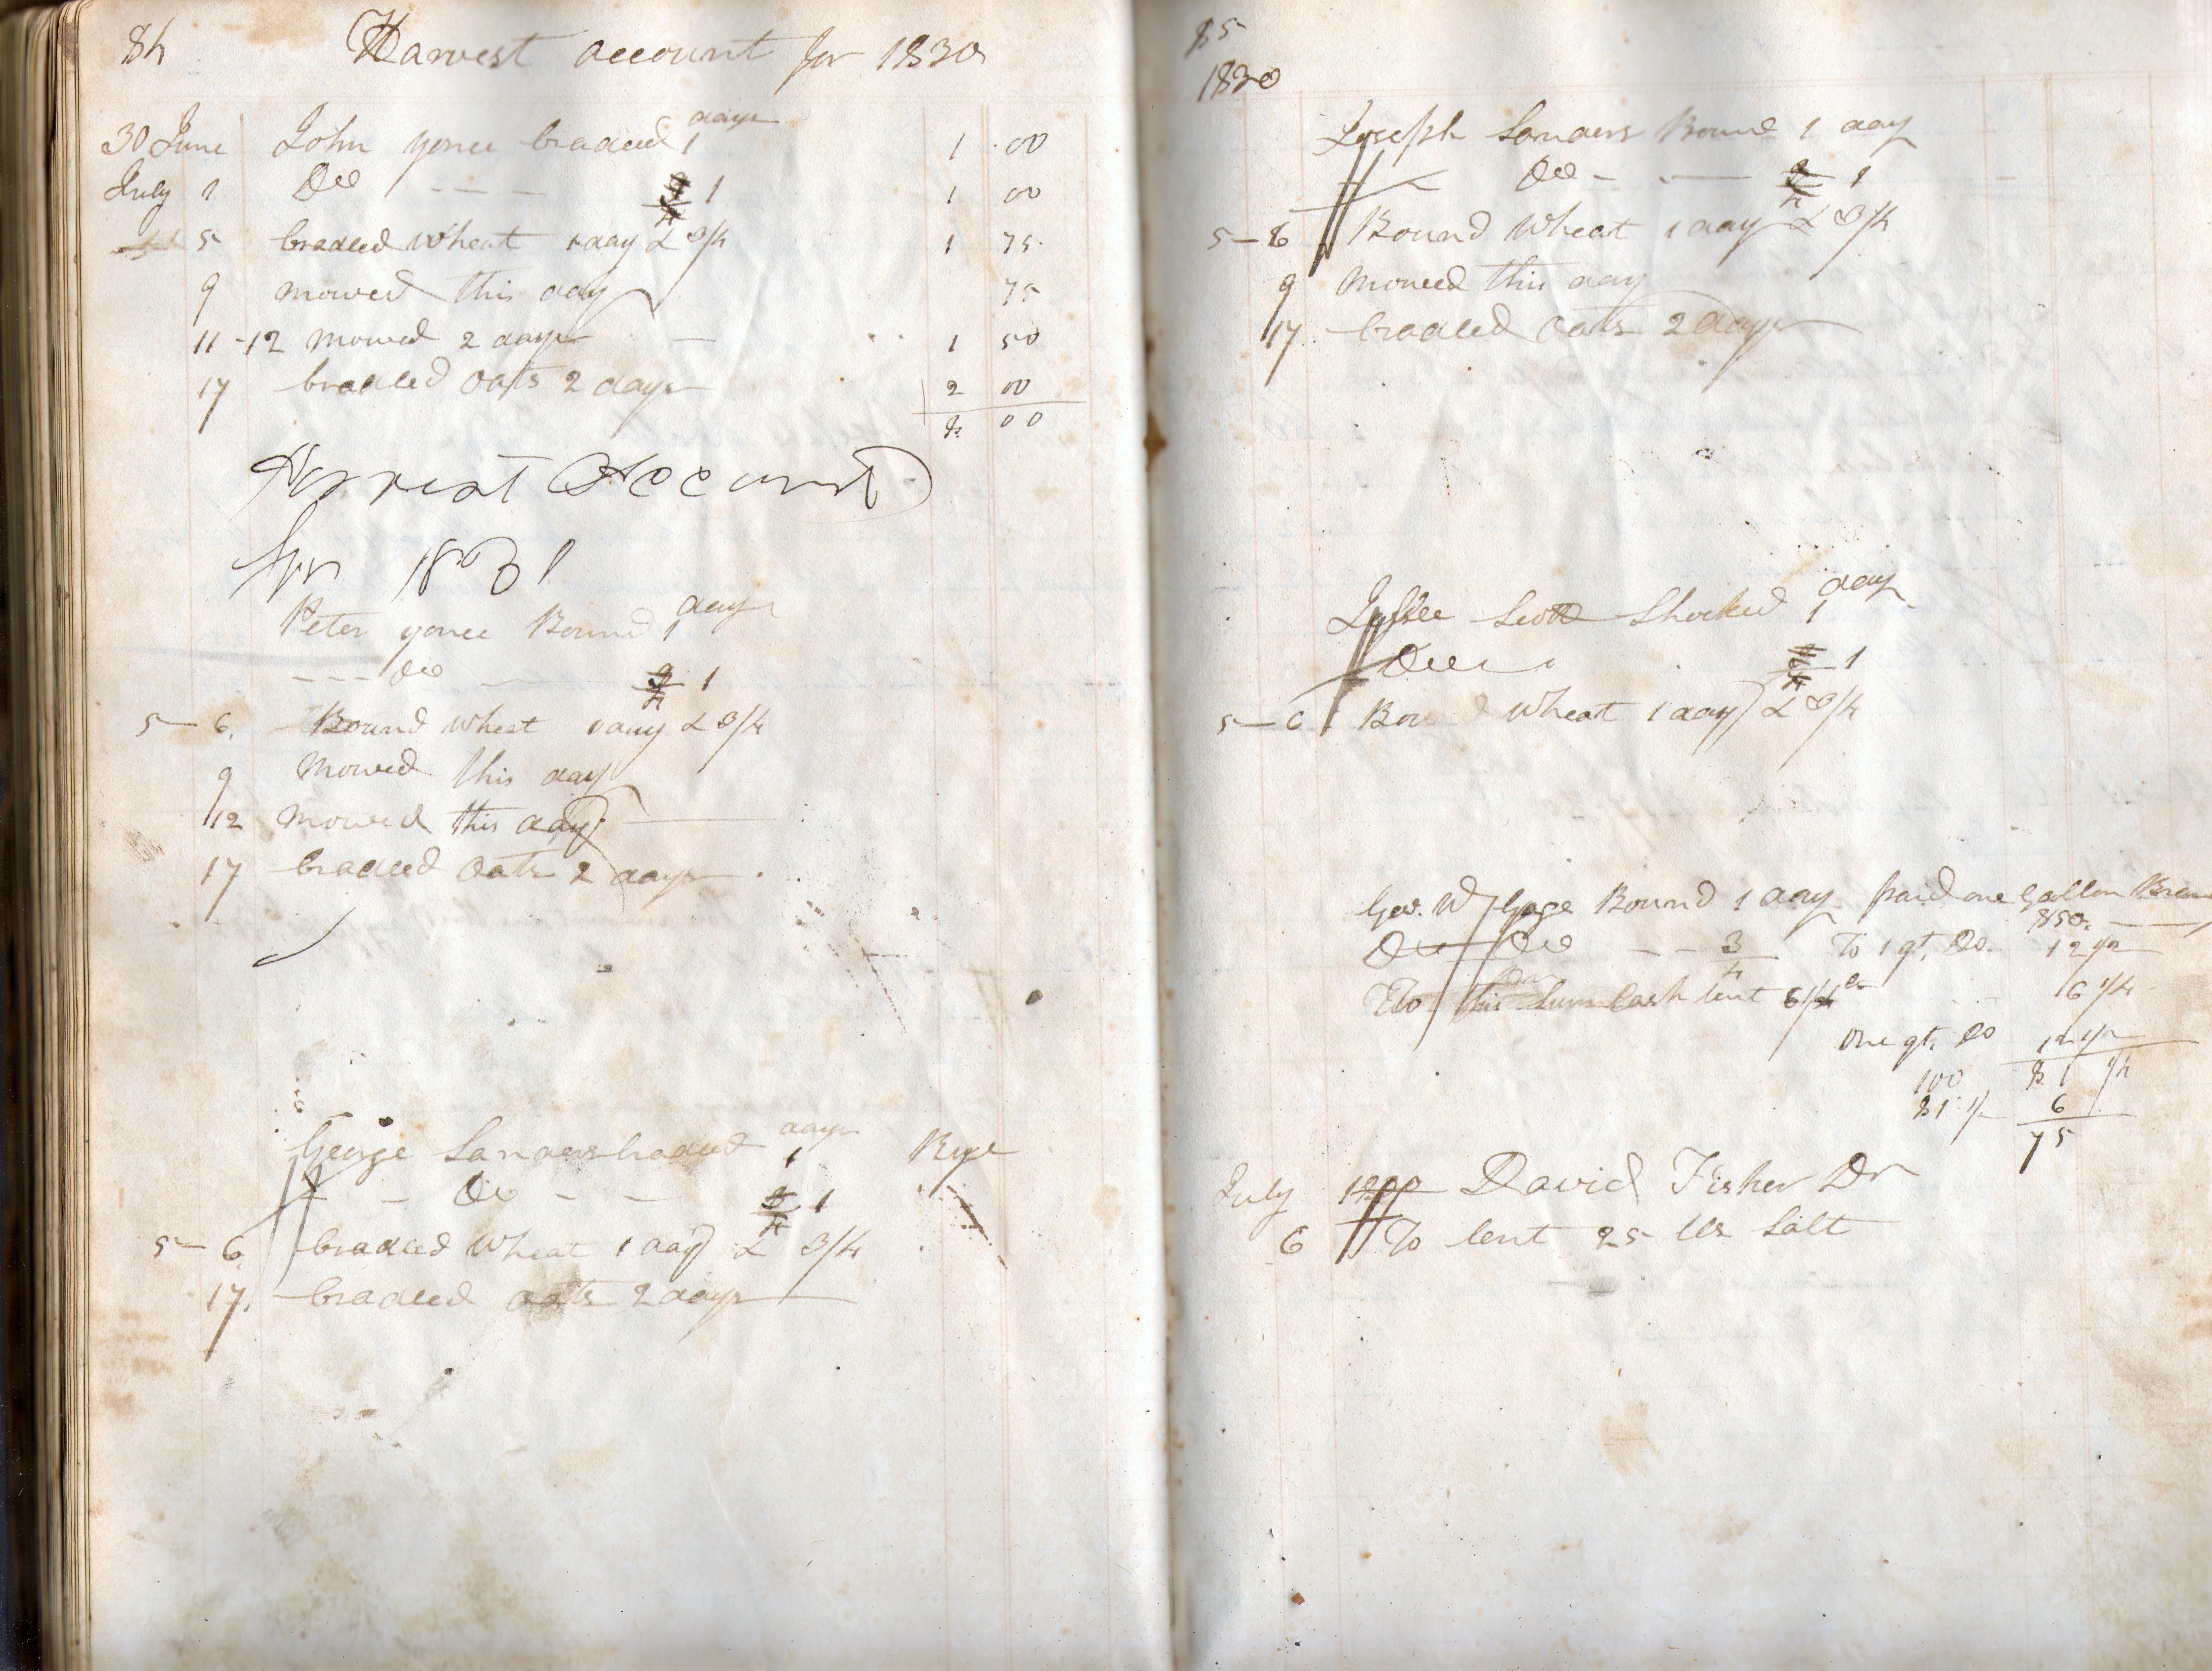 84 Harvest account for 1830
days
30 June John yonce cradled 1 1 00
July 1 Do 1 1 00
5 cradled wheat 1 day & 3/4 1 75
9 mowed this day 75
11-12 mowed 2 days 1 50
17 cradled oats 2 days 2 00
8. 00
Harvest Account
for 1831
days
Peter yonce Bound 1
Do 1
5-6. Bound wheat 1 day & 3/4
9 Mowed this day
12 mowed this day
17 cradled oats 2 days
days
George Sanders cradled 1 Rye
Do 1
5-6 cradled wheat 1 day & 3/4
17. cradled oats 2 days
85
1830
Joseph Sanders Bound 1 day
Do 1
5-6 Bound wheat 1 day & 3/4
9 Mowed this day
17 cradled oats 2 days
day
Scott Shocked 1
Do 1
5-6 Bound wheat 1 day & 3/4
Geo. W Gage Bound 1 day paid one Gallon
$50.
Do Do 3/4 To 1 qt. Do. 12 1/2
To this sum Cash lent 6 1/4 6 1/4
One qt. Do 12 1/2
100 $1 1/4
81 1/4 6
75
July 1830 David Fisher Dr
6 To lent 25 lbs Salt